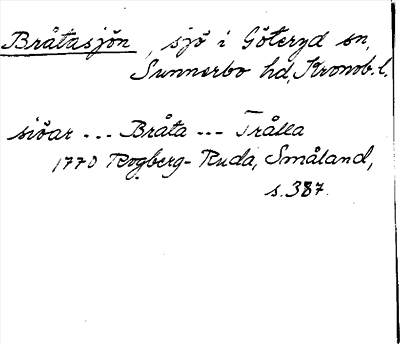 Bråtasjön, sjö i Göteryd sn,
Sunnerbo hd, Kronob. l.
siöar --- Bråta --- Trålla
1770 Rogberg-Ruda, Småland,
s. 387.